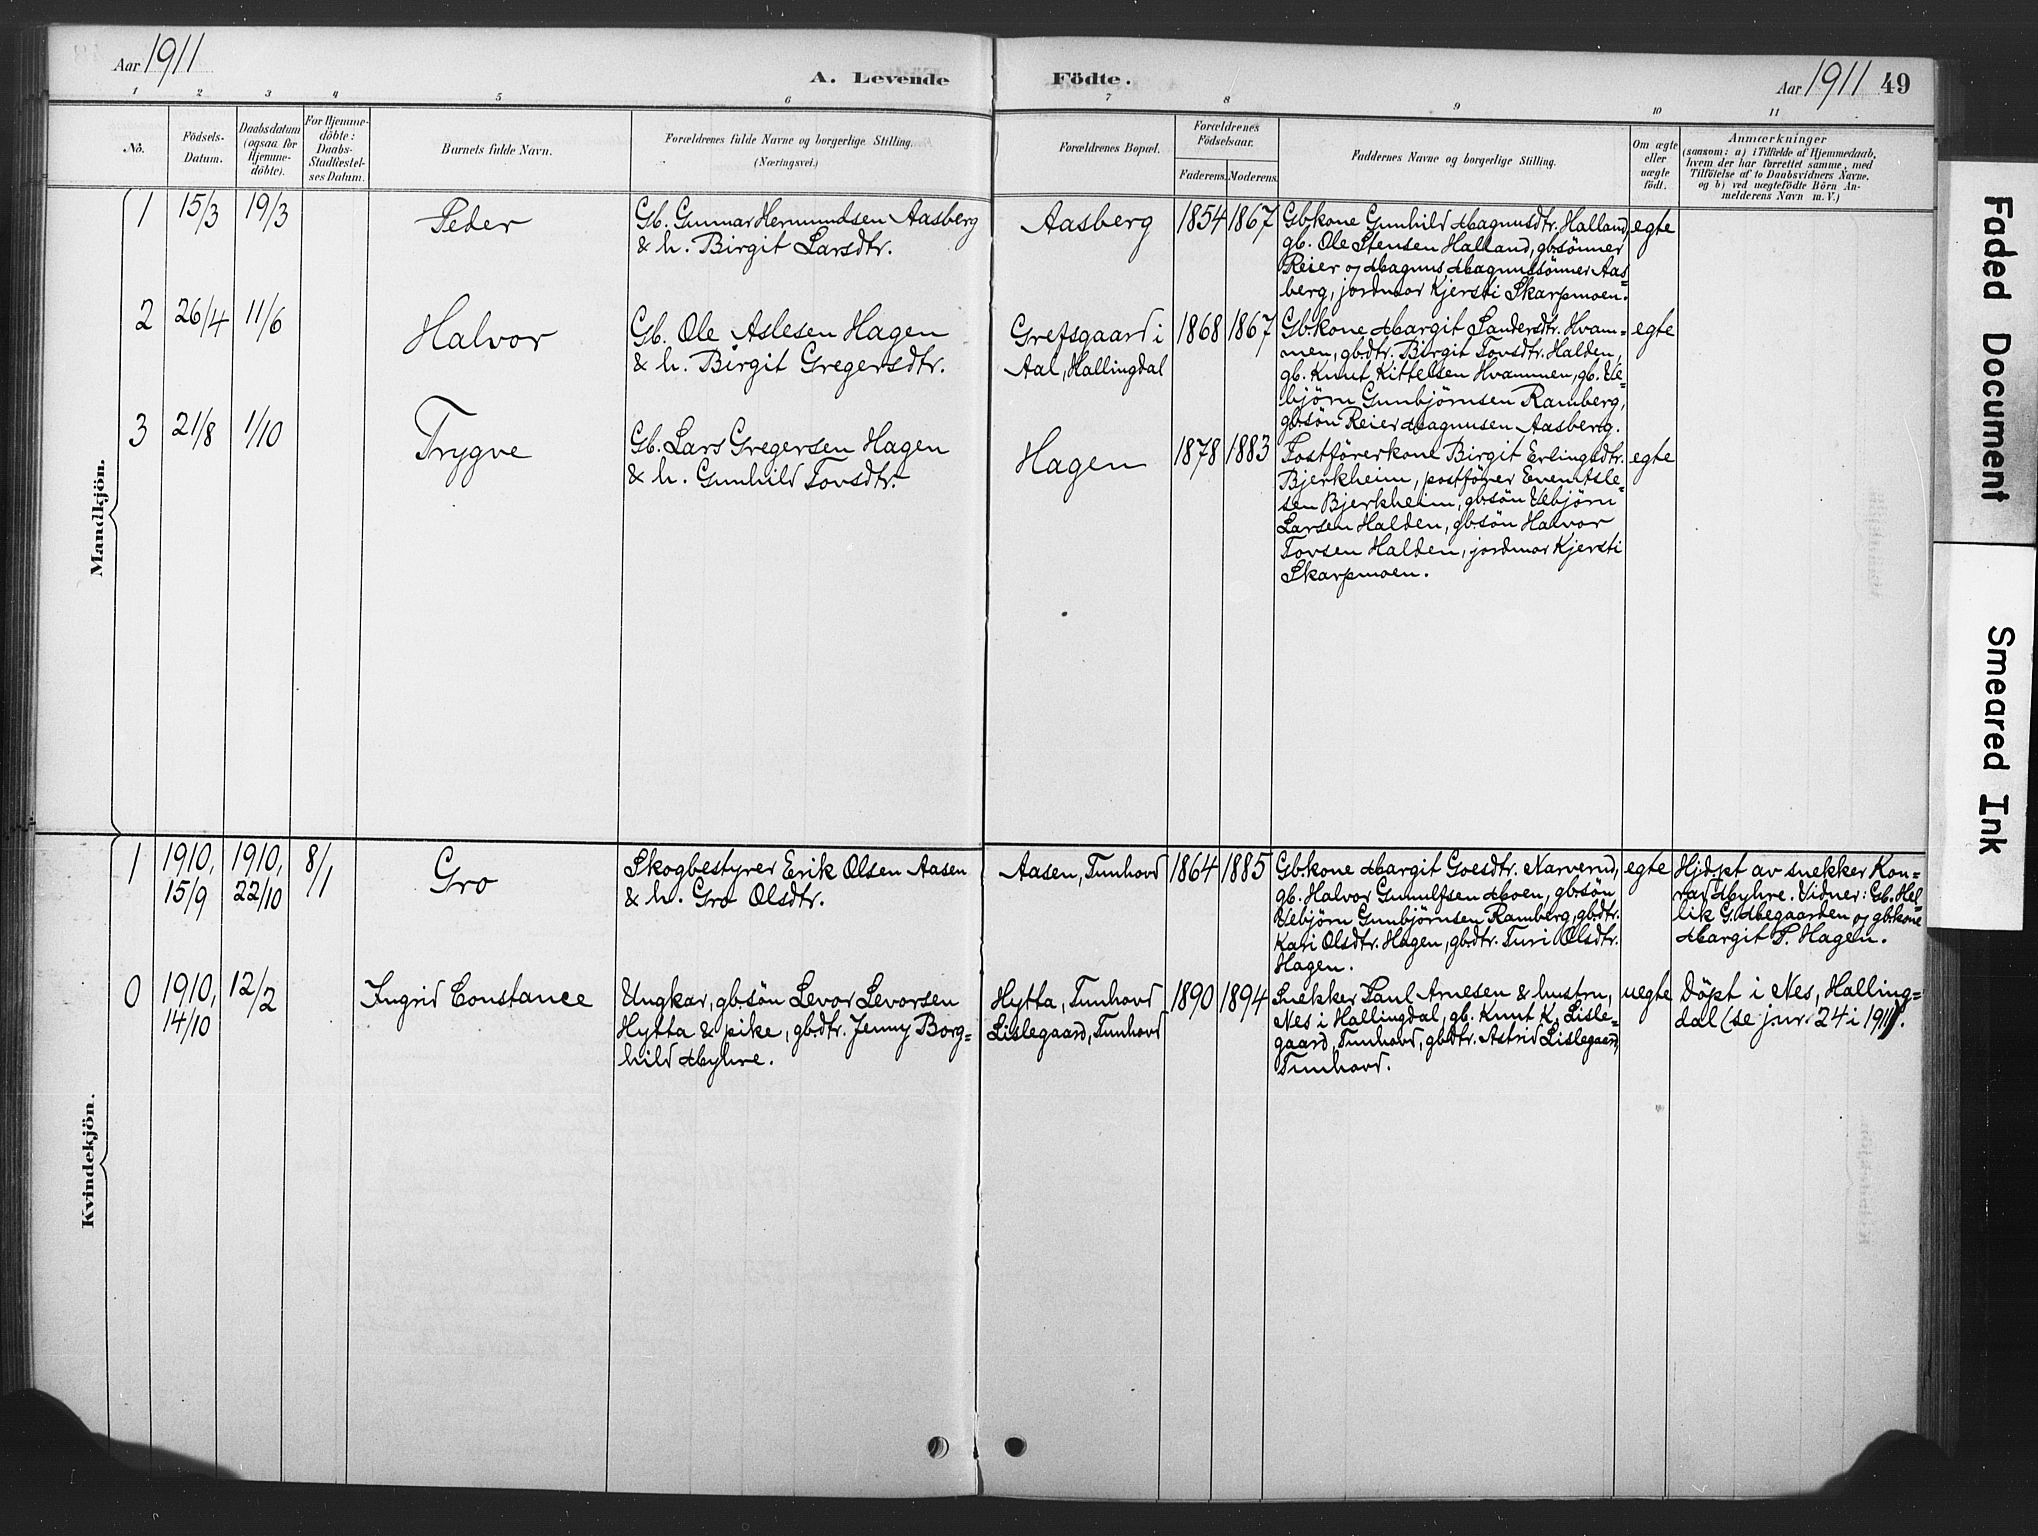 Aar 1911
A. Levende Födte.
Aar 1911 49
1 2 3 4 5 6 7 8 9 10 11
No.
Födsels-
Datum.
Daabsdatum
(ogsaa for
Hjemme-
döbte).
For Hjemme-
döbte:
Daabs-
Stadfæstel-
ses Datum.
Barnets fulde Navn.
Forældrenes fulde Navne og borgerlige Stilling.
(Næringsvei.)
Forældrenes Bopæl.
Forældrenes
Födselsaar.
Faderens. Moderens.
Faddernes Navne og borgerlige Stilling.
Om ægte
eller
uægte
födt.
Anmærkninger
(saasom: a) i Tilfælde af Hjemmedaab,
hvem der har forrettet samme, med
Tilföielse af to Daabsvidners Navne.
og b) ved uægtefödte Börn An-
melderens Navn m. V.)
Mandkjön.
1 15/3 19/3
Peder
Gb. Gunnar Hermundsen Aasberg
& h. Birgit Larsdtr.
Aasberg
1854 1867
Gbkone Gunhild Magnusdtr. Halland,
gb. Ole Stensen Halland, gbsønner
Reier og Magnus Magnussønner Aas-
berg, jordmor Kjersti Skarpmoen.
egte
2 26/4 11/6
Halvor
Gb. Ole Aslesen Hagen
& h. Birgit Gregersdtr.
Grefsgaard i
Aal, Hallingdal
1868 1867
Gbkone Margit Sandersdtr. Hvam-
men, gbdtr. Birgit Tovsdtr. Halden,
gb. Knut Kittelsen Hvammen, gb. Ve-
bjørn Gunbjørnsen Ramberg,
gbsøn Reier Magnusen Aasberg.
egte
3 21/8 1/10
Trygve
Gb. Lars Gregersen Hagen
& h. Gunhild Tovsdtr.
Hagen
1878 1883
Postførerkone Birgit Erlingsdtr.
Bjerkheim, postfører Even Asle-
sen Bjerkheim, gbsøn Vebjørn
Larsen Halden, gbsøn Halvor
Tovsen Halden, jordmor Kjersti
Skarpmoen.
egte
Kvindekjön.
1 1910, 15/9 1910, 22/10 8/1
Gro
Skogbestyrer Erik Olsen Aasen
& h. Gro Olsdtr.
Aasen, Tunhovd
1864 1885
Gbkone Margit Goesdtr. Narverud,
gb. Halvor Gunulfsen Moen, gbsøn
Vebjørn Gunbjørnsen Ramberg, gbdtr.
Kari Olsdtr. Hagen, gbdtr. Turi Olsdtr.
Hagen.
egte
Hjdpt av snekker Kon-
rad Myhre. Vidner: Gb. Hel-
lik G. Megaarden og gbkone
Margit P. Hagen.
0 1910, 14/10 12/2
Ingrid Constance
Ungkar, gbsøn Levor Levorsen
Hytta & pike, gbdtr. Jenny Borg-
hild Myhre.
Hytta, Tunhovd
Lislegaard, Tunhovd
1890 1894
Snekker Paul Arnesen & hustru,
Nes i Hallingdal, gb. Knut K. Lisle-
gaard, Tunhovd, gbdtr. Astrid Lislegaard,
Tunhovd.
uegte
Døpt i Nes, Halling-
dal (se jnr. 24 i 1911).
Faded Document
Smeared Ink